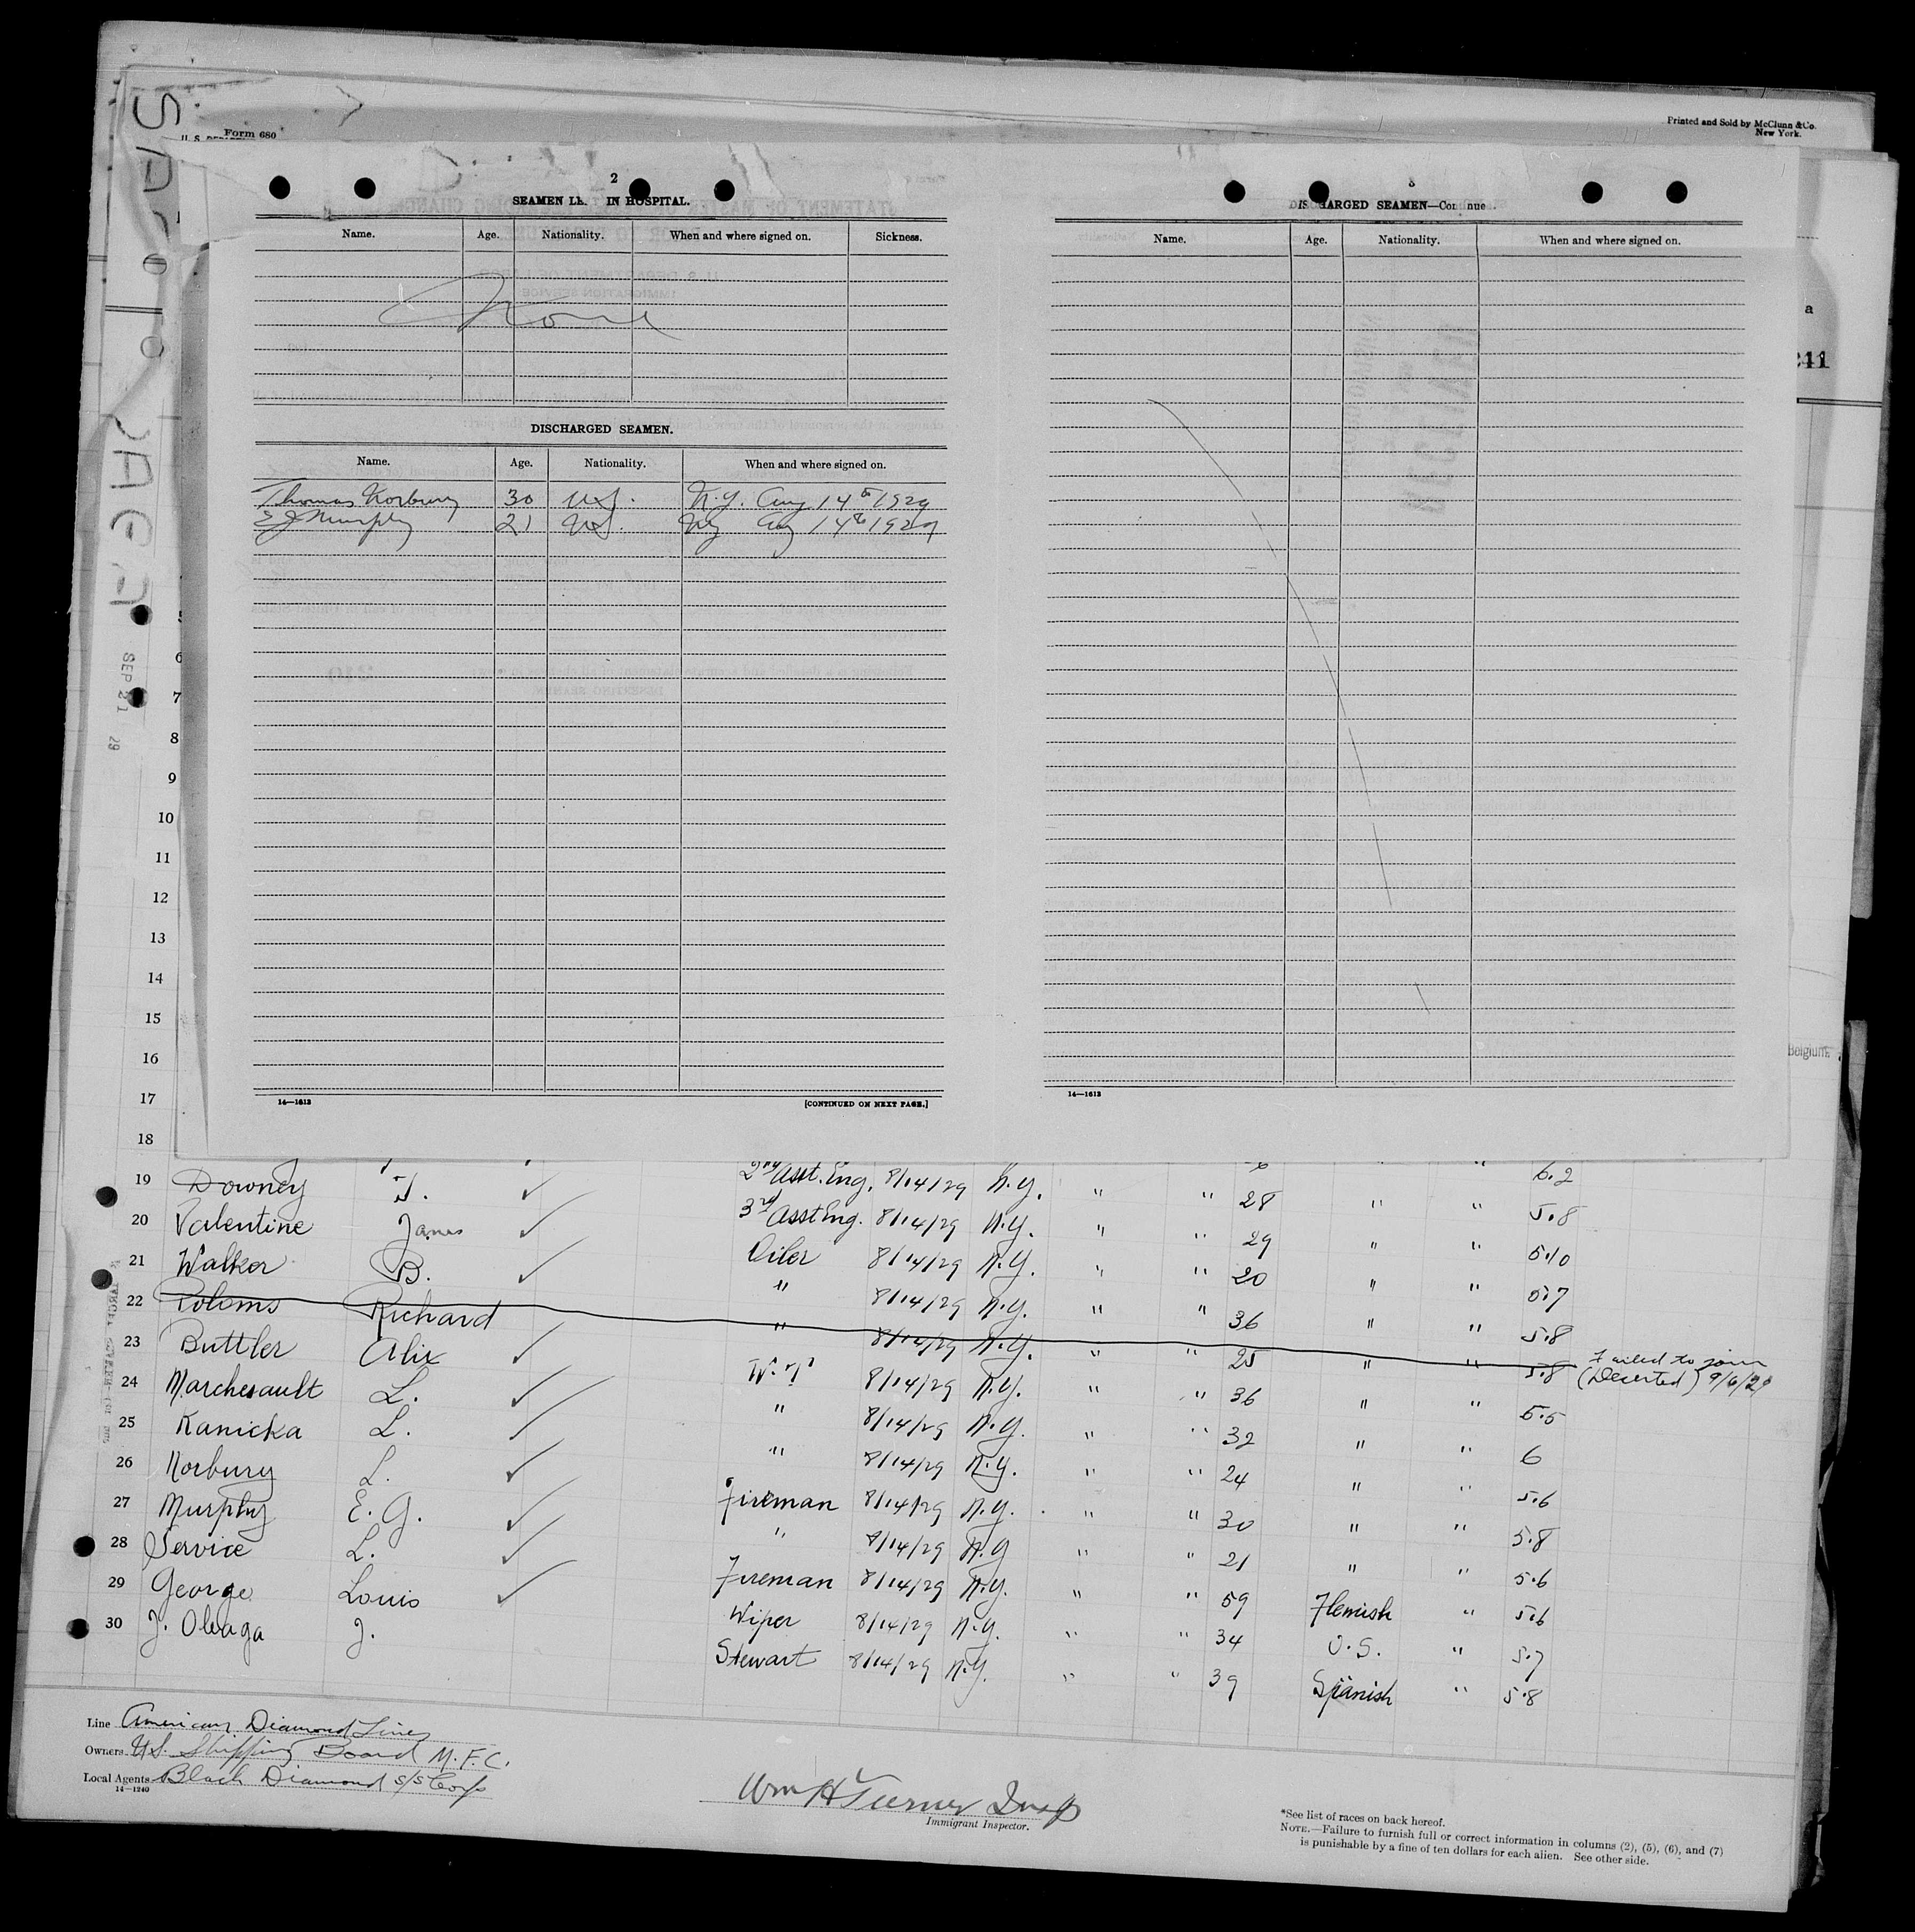 Form 680
Printed and Sold by McClunn & Co.
New York.
2
SEAMEN IN HOSPITAL.
Name. Age. Nationality. When and where signed on. Sickness.
None
DISCHARGED SEAMEN.
Name. Age. Nationality. When and where signed on.
Thomas Norbury 30 U.S. N.Y. Aug 14th 1929
E J Murphy 21 U.S. NY Aug 14th 1929
14—1613 [CONTINUED ON NEXT PAGE.]
3
DISCHARGED SEAMEN—Continue
Name. Age. Nationality. When and where signed on.
14—1613
a
241
Belgium
SEP 21 29
6
7
8
9
10
11
12
13
14
15
16
17
18
6.2
19 Downey J. 2nd Asst. Eng. 8/14/29 N.Y. " " 28 " " 5.8
20 Valentine James 3rd Asst Eng. 8/14/29 N.Y. " " 29 " " 5.10
21 Walker B. Oiler 8/14/29 N.Y. " " 20 " " 5.7
22 Poloms Richard " 8/14/29 N.Y. " " 36 " " 5.8
23 Buttler Alix " 8/14/29 N.Y. " " 25 " " 5.8 Failed to join
(Deserted) 9/6/29
24 Marchesault L. W.T. 8/14/29 N.Y. " " 36 " " 5.5
25 Kanicka L. " 8/14/29 N.Y. " " 32 " " 6
26 Norbury L. " 8/14/29 N.Y. " " 24 " " 5.6
27 Murphy E. G. Fireman 8/14/29 N.Y. " " 30 " " 5.8
28 Service L. " 8/14/29 N.Y " " 21 " " 5.6
29 George Louis Fireman 8/14/29 N.Y. " " 59 Flemish " 5.6
30 J. Oleaga J. Wiper 8/14/29 N.Y. " " 34 U.S. " 5.7
Stewart 8/14/29 N.Y. " " 39 Spanish " 5.8
Line American Diamond Lines
Owners U.S. Shipping Board M.F.C.
Local Agents Black Diamond S/S Corp
14—1240
Wm H Turner Insp
Immigrant Inspector.
*See list of races on back hereof.
NOTE.—Failure to furnish full or correct information in columns (2), (5), (6), and (7)
is punishable by a fine of ten dollars for each alien. See other side.